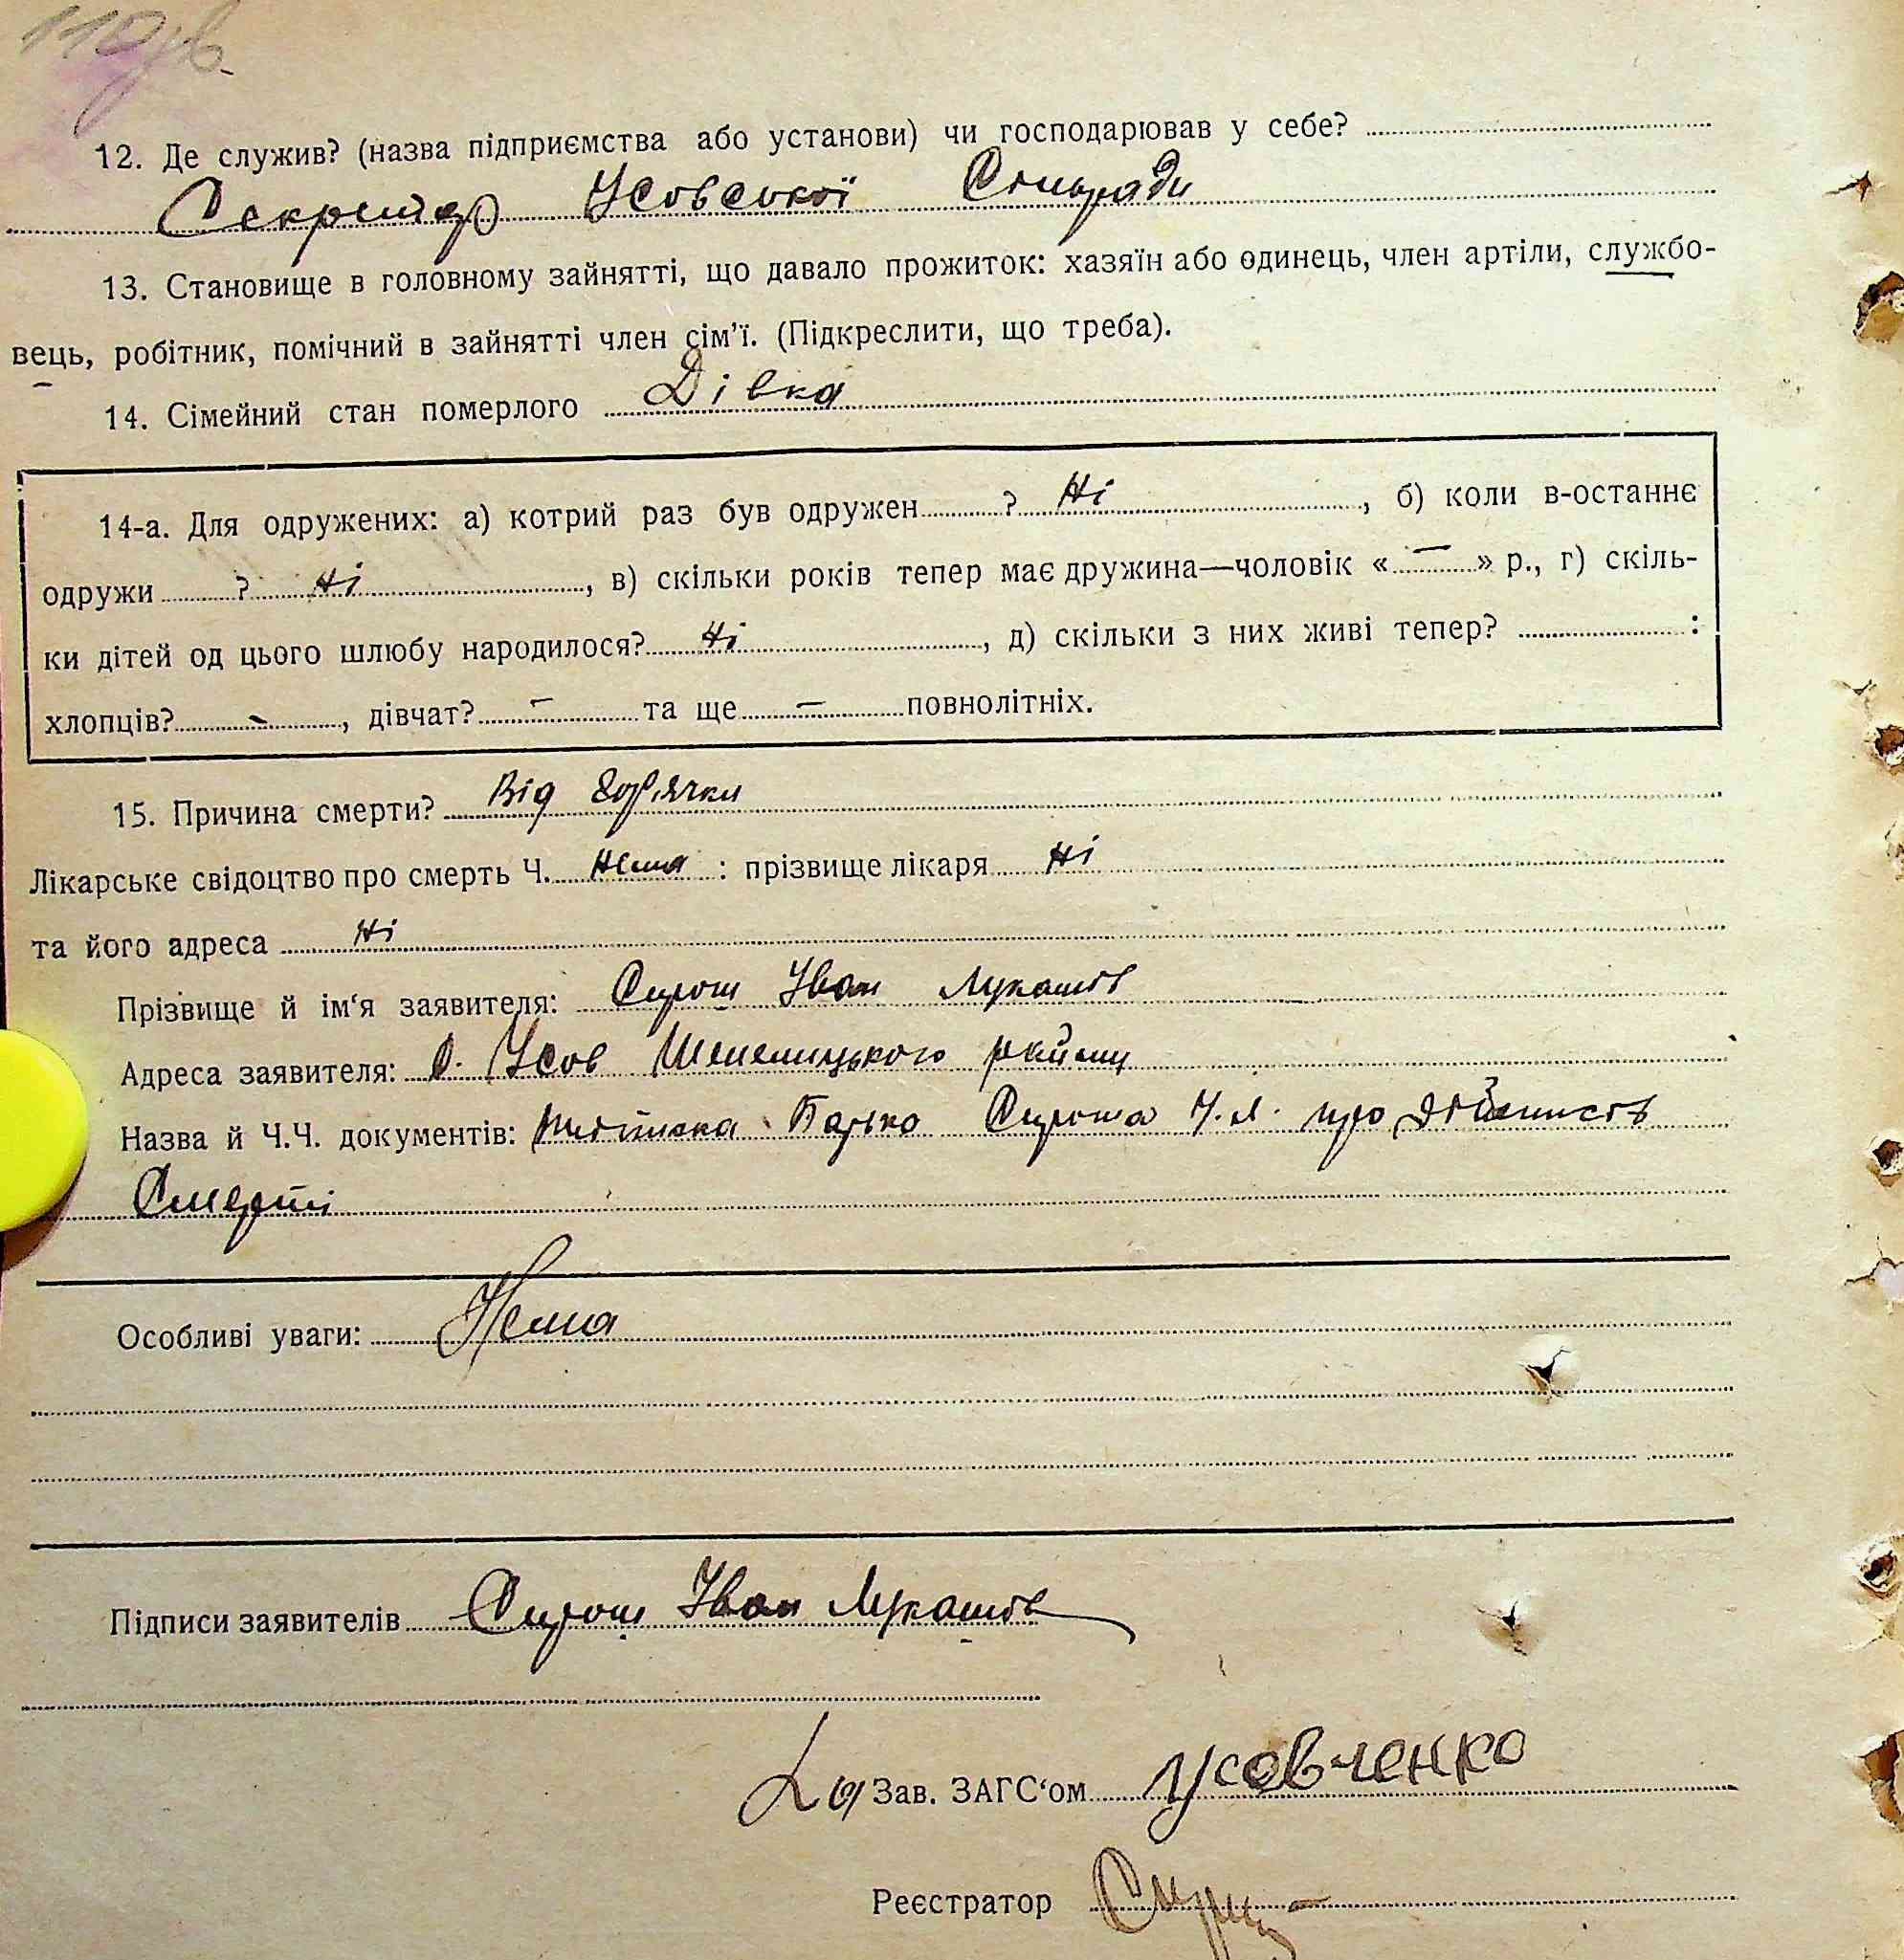 110зв.
12. Де служив? (назва підприємства або установи) чи господарював у себе?
Секретар Усовської Сільради
13. Становище в головному зайнятті, що давало прожиток: хазяїн або одинець, член артіли, службо-
вець, робітник, помічний в зайнятті член сім'ї. (Підкреслити, що треба).
14. Сімейний стан померлого Дівка
14-а. Для одружених: а) котрий раз був одружен ? Ні , б) коли в-останнє
одружи ? Ні , в) скільки років тепер має дружина—чоловік « — » р., г) скіль-
ки дітей од цього шлюбу народилося? Ні , д) скільки з них живі тепер? :
хлопців? - , дівчат? — та ще — повнолітніх.
15. Причина смерти? Від гор'ячки
Лікарське свідоцтво про смерть Ч. Нема : прізвище лікаря Ні
та його адреса Ні
Прізвище й ім'я заявителя: Сирош Іван Лукашов
Адреса заявителя: С. Усов Шепелицького району
Назва й Ч.Ч. документів: Батько про дійсність
Смерті
Особливі уваги: Нема
Підписи заявителів Сирош Іван Лукашов
Зав. ЗАГС'ом Усовченко
Реєстратор